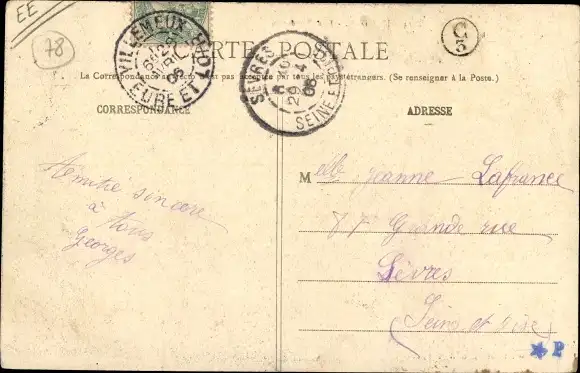 EE
78
VILLEMEUX EURE ET
CARTE POSTALE
SEVRES
29 4 06
SEINE ET
G 3
La Correspondance au recto n'est pas acceptée par tous les pays étrangers. (Se renseigner à la Poste.)
CORRESPONDANCE
ADRESSE
Amitié sincère
à tous
Georges
Melle Jeanne Lafrance
Grande rue
Sèvres
Seine et Oise
P